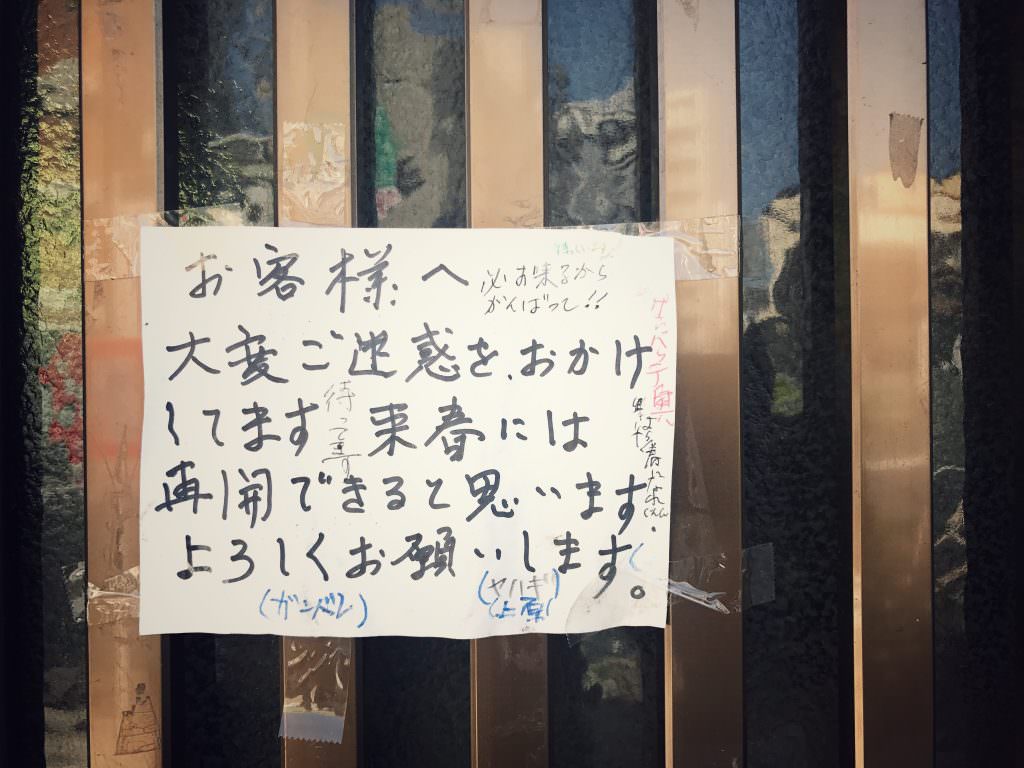 お客様へ
必ず来るから
がんばって!!
大変ご迷惑を、おかけ
してます 来春には
待ってます
再開できると思います。
よろしくお願いします。
(ガンバレ)
(ヤハギ)
(上原)